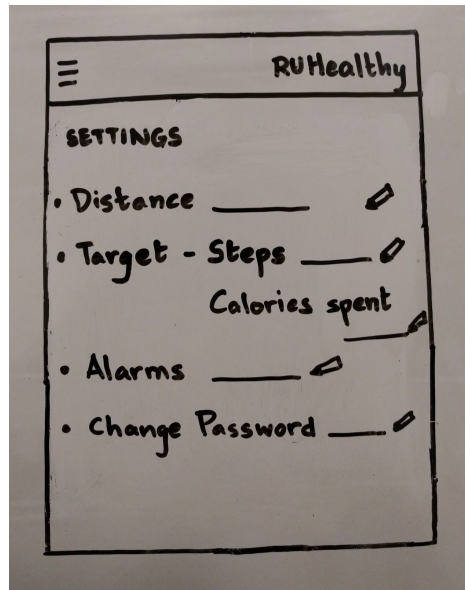 RUHealthy
SETTINGS
• Distance ______
• Target - Steps ____
Calories spent
____
• Alarms _____
• Change Password ___